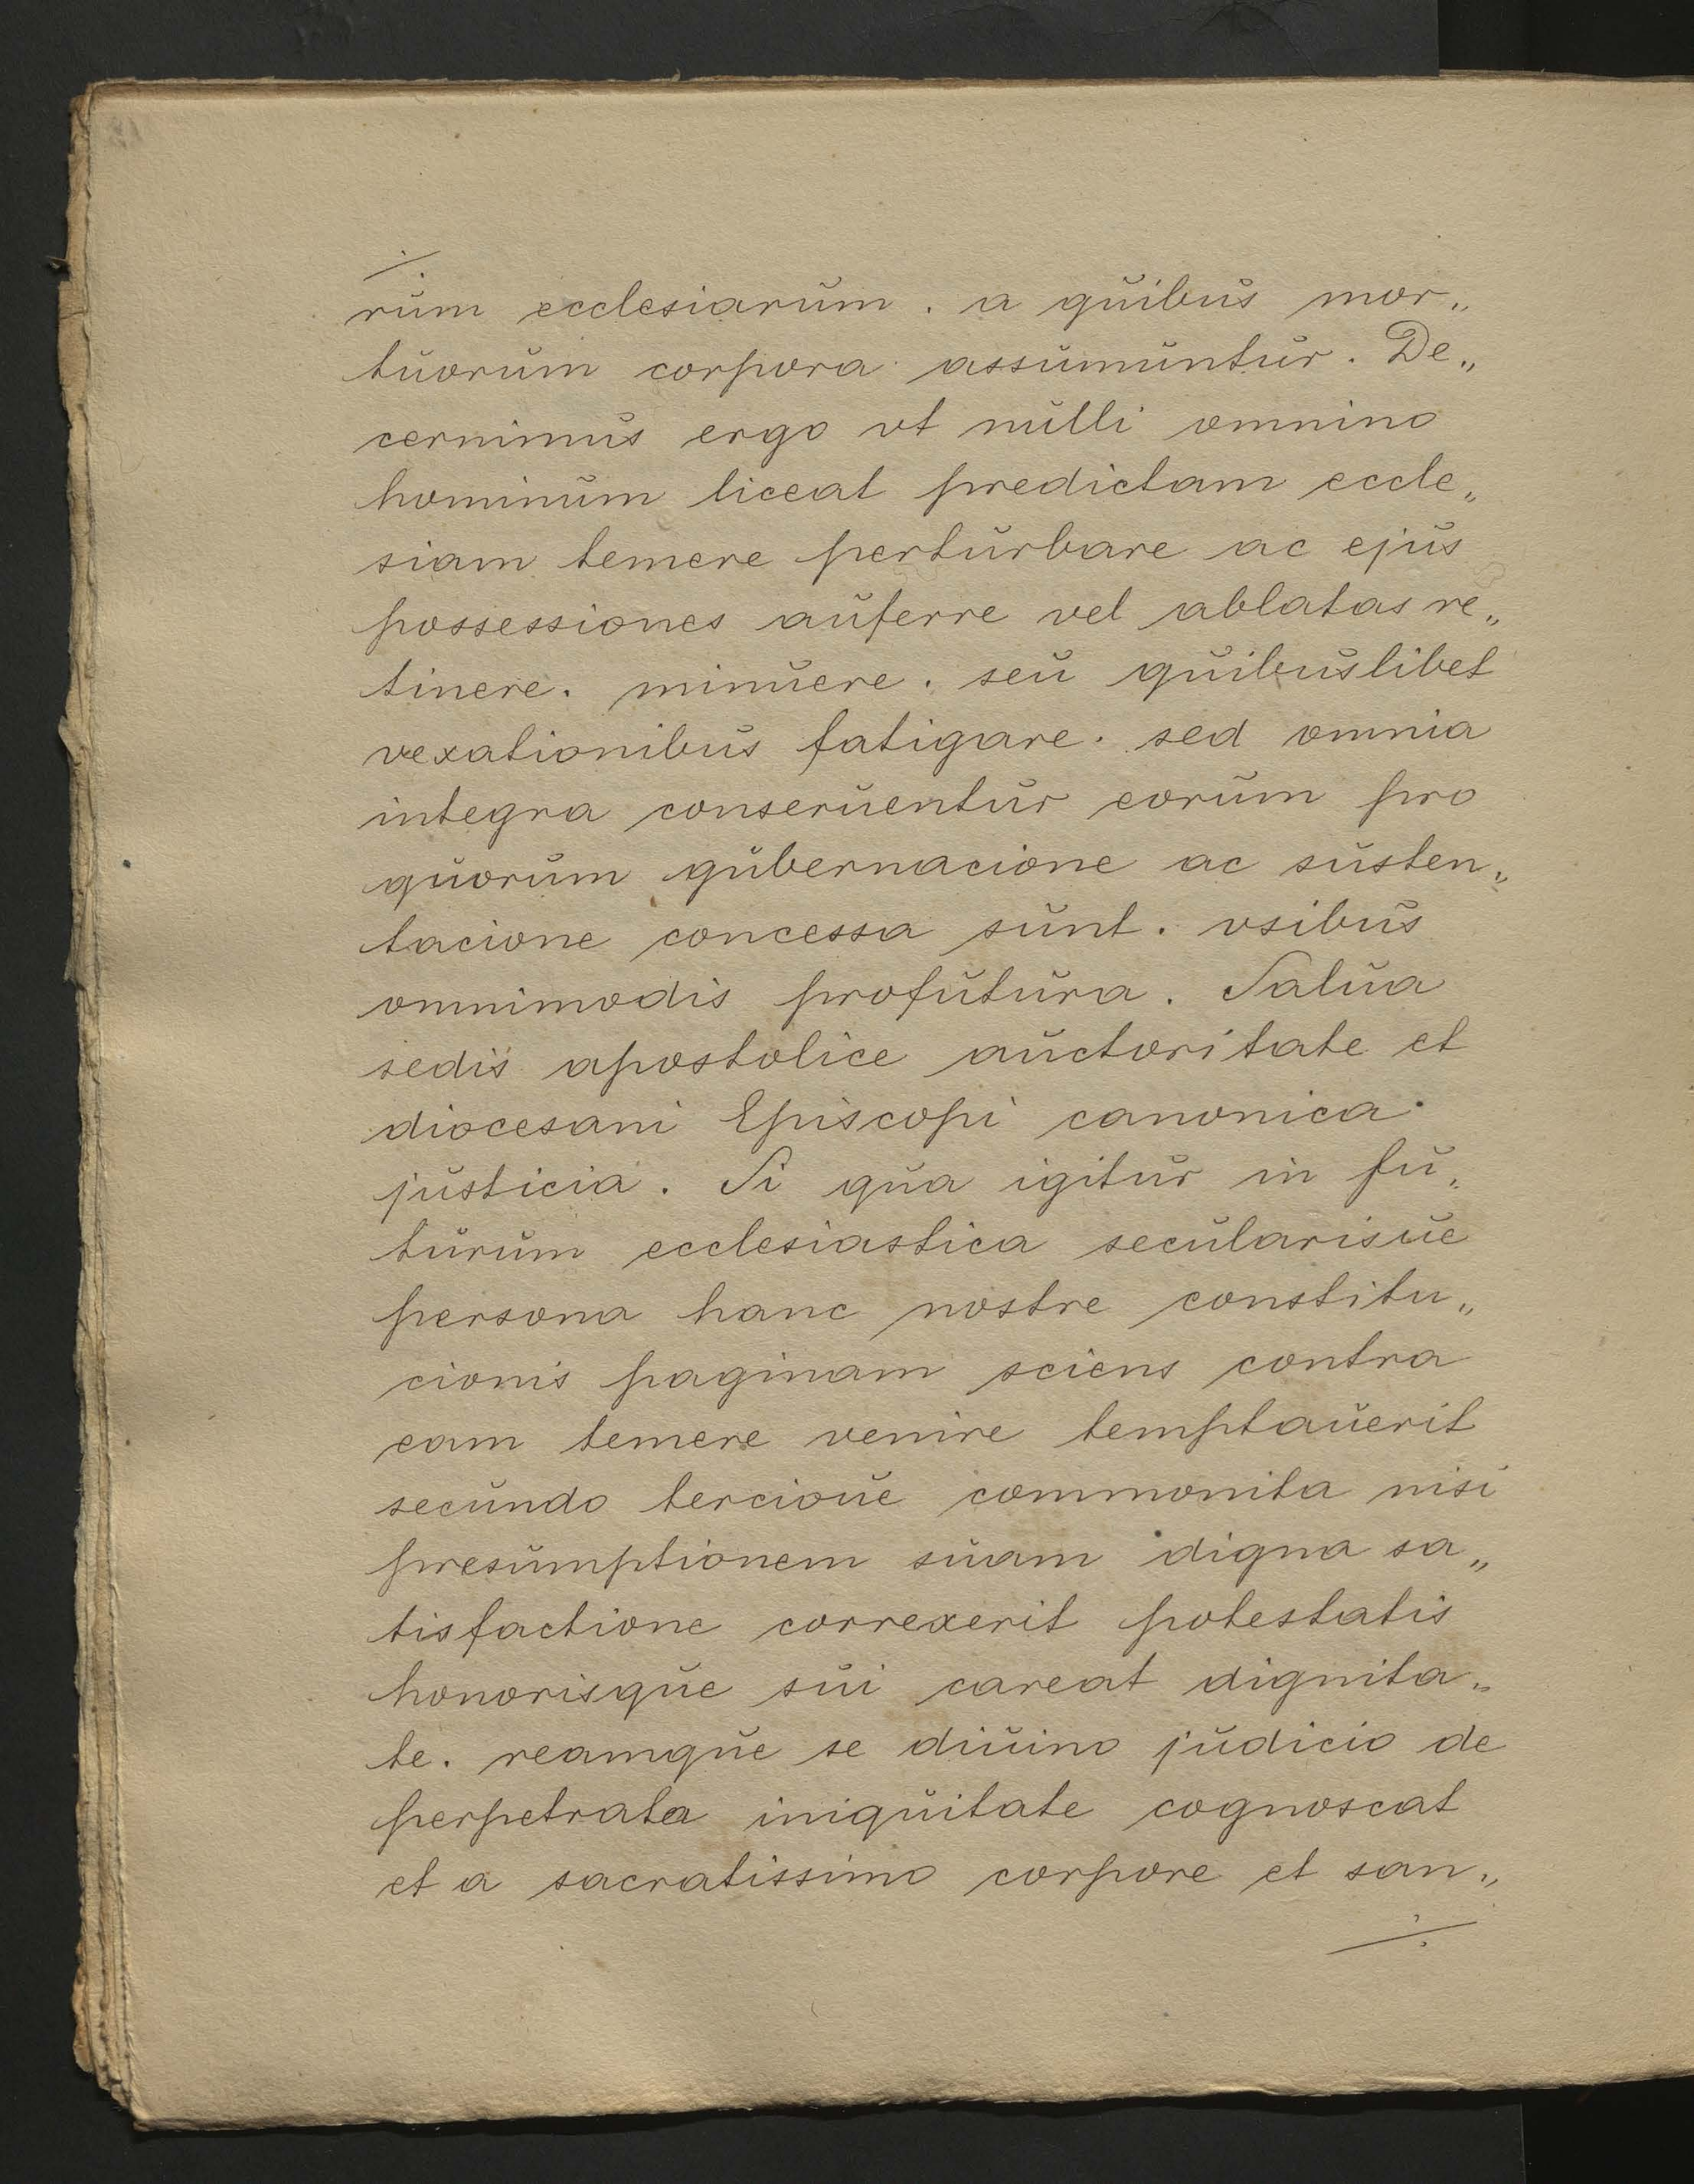 ./.
rum ecclesiarum. a quibus mor„
tuorum corpora assumuntur. De„
cernimus ergo vt nulli omnino
hominum liceat predictam eccle„
siam temere perturbare ac ejus
possessiones auferre vel ablatas re„
tinere. minuere. seu quibuslibet
vexationibus fatigare. sed omnia
integra conseruentur eorum pro
quorum gubernacione ac susten„
tacione concessa sunt. vsibus
omnimodis profutura. Salua
sedis apostolice auctoritate et
diocesani Episcopi canonica
justicia. Si qua igitur in fu„
turum ecclesiastica secularisue
persona hanc nostre constitu„
cionis paginam sciens contra
eam temere venire temptauerit
secundo tercioue commonita nisi
presumptionem suam digna sa„
tisfactione correxerit potestatis
honorisque sui careat dignita„
te. reamque se diuino judicio de
perpetrata iniquitate cognoscat
et a sacratissimo corpore et san„
./.